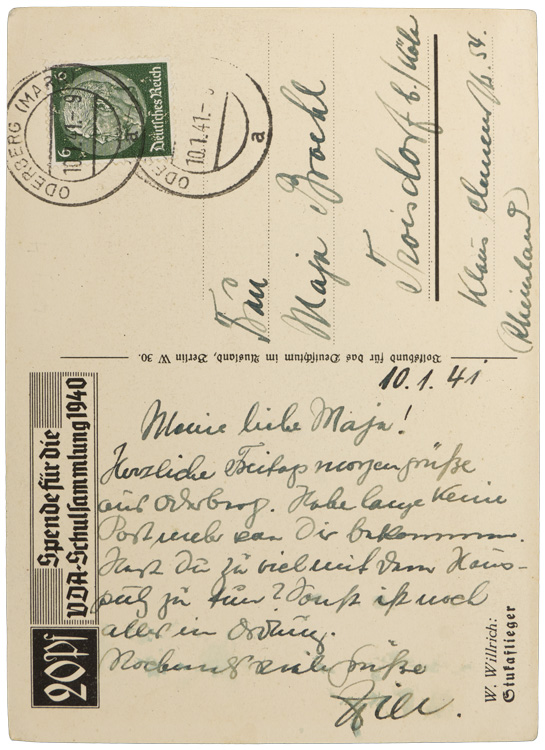 10.1.41
Meine liebe Maja!
Herzliche Freitagsmorgengrüße
aus Oderberg. Habe lange keine
Post mehr von Dir bekommen.
Hast Du zu viel mit dem Haus-
putz zu tun? Sonst ist noch
alles in Ordnung.
Nochmals viele Grüße
Frau
Maja Broehl
Troisdorf b./Köln
Klaus Clemens Str. 54.
(Rheinland)
ODERBERG (MARK)
10.1.41.-9
a
ODE
10.1.41.-
a
Deutsches Reich
6
6
Volksbund für das Deutschtum im Ausland, Berlin W 30.
Spende für die
VDA-Schulsammlung 1940
20 Pf
W. Willrich:
Stukaflieger